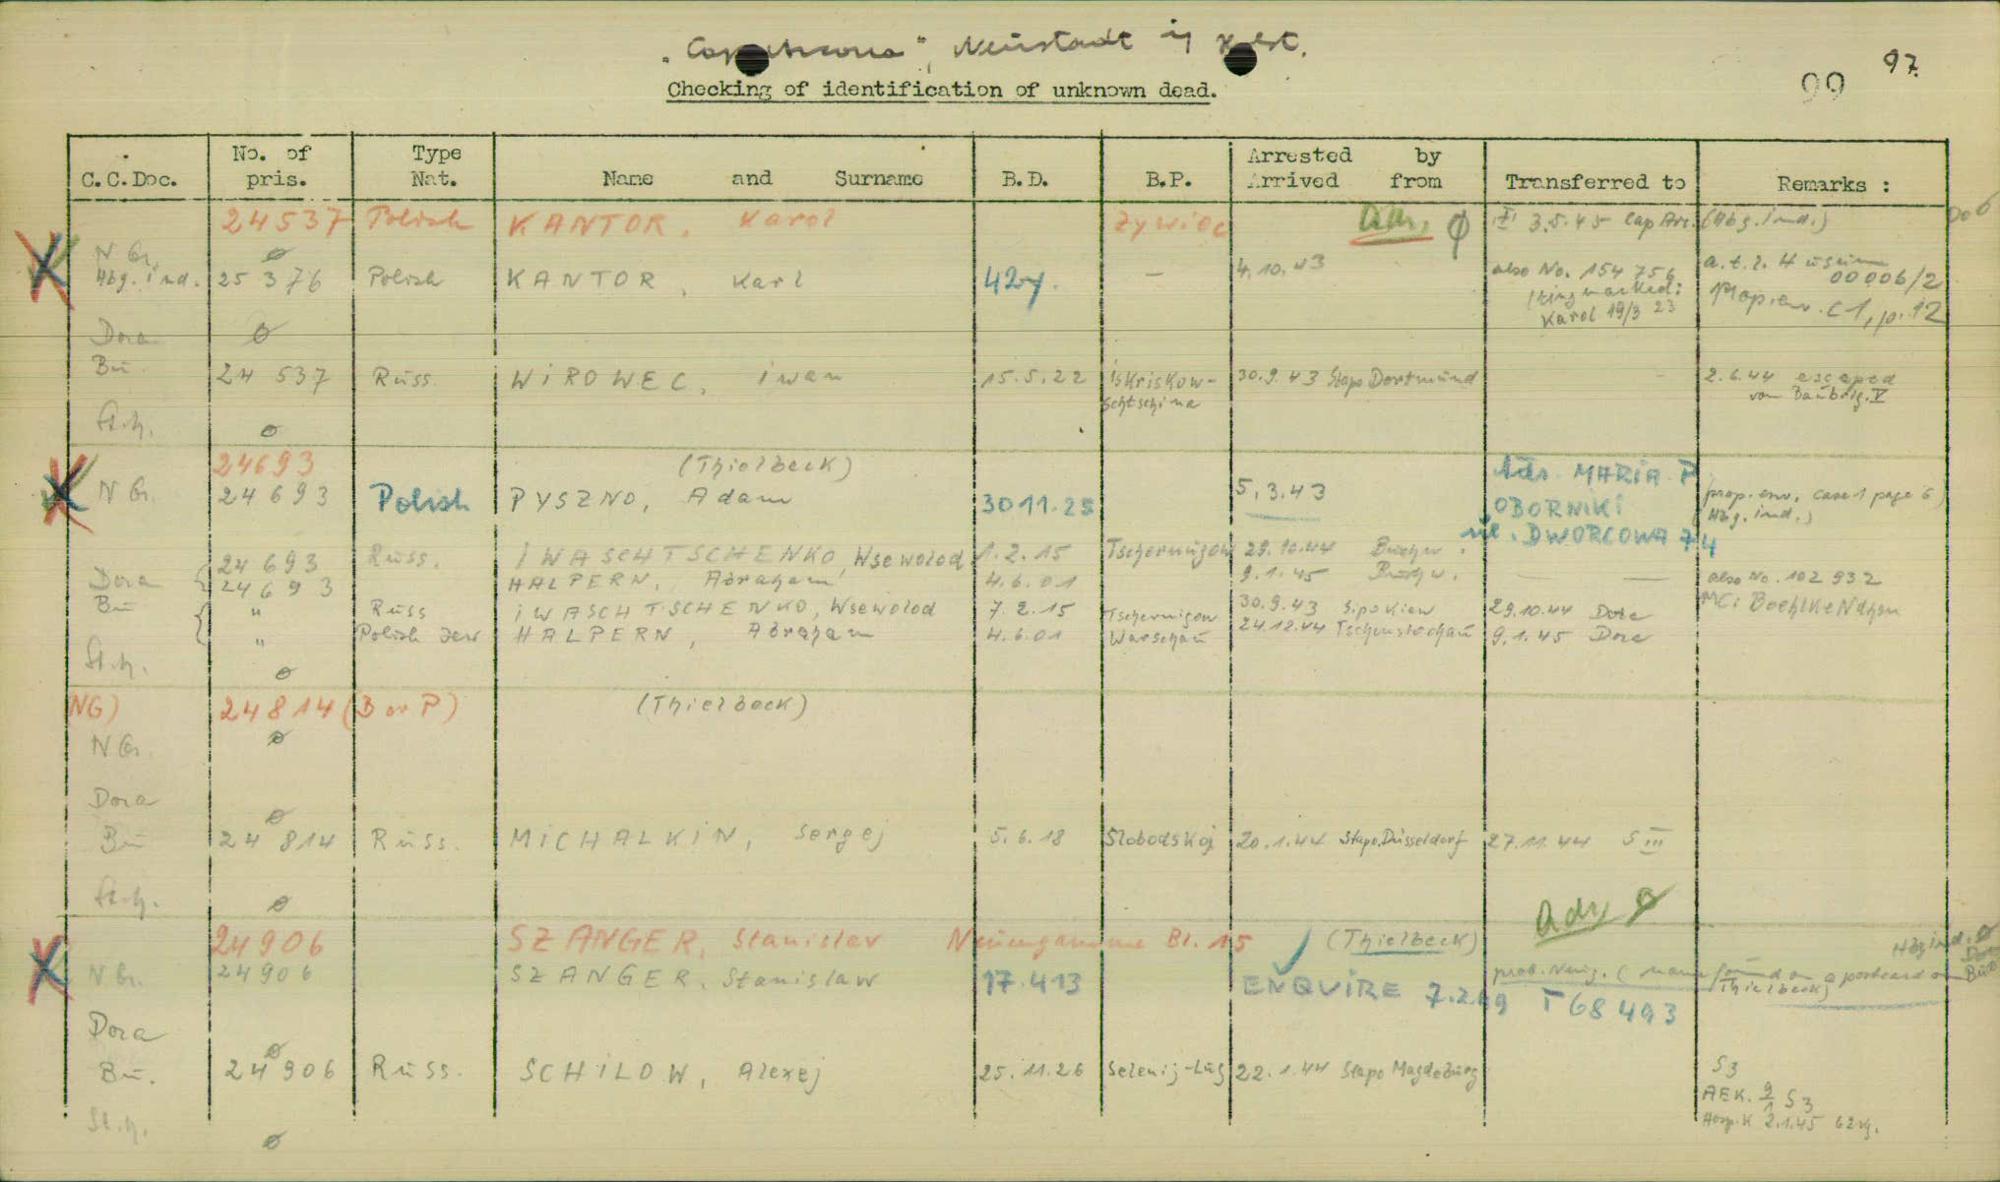 Neustadt in Holst.
97.
99
Checking of identification of unknown dead.
C.C.Doc. No. of pris. Type Nat. Name and Surname B.D. B.P. Arrested by Arrived from Transferred to Remarks :
24537 Polish KANTOR, Karol Zywiec adm. ø 3.5.45 Cap Arc. (Abg. ind.)
N Gr. ø
Abg. ind. 25 376 Polish KANTOR, Karl 42y. — 4.10.43 also No. 154 756 00006/2
Karol 19/3 23 C1, p. 12
Dora ø
Bu. 24 537 Russ. WIROWEC, iwan 15.5.22 Iskriskow-schtschina 30.9.43 Stapo Dortmund 2.6.44 escaped
von Baubrig. V
St.h. ø
24693 (Thielbeck)
N Gr. 24693 Polish PYSZNO, Adam 30 11.25 5.3.43 MARIA P. prop. env. case 1 page 6
OBORNIKI Abg. ind.)
ul. DWORCOWA 74
24693 Russ. IWASCHTSCHENKO, Wsewolod 1.2.15 Tschernigow 29.10.44 Buchw.
Dora 24693 HALPERN, Abraham 4.6.01 9.1.45 Buchw. — — also No. 102 932
Bu " Russ IWASCHTSCHENKO, Wsewolod 7.2.15 Tschernigow 30.9.43 Sipo Kiew 29.10.44 Dora
" Polish Jew HALPERN, Abraham 4.6.01 Warschau 24.12.44 Tschenstochau 9.1.45 Dora
St.h. ø
NG) 24814 (B or P) (Thielbeck)
N Gr. ø
Dora ø
Bu 24 814 Russ. MICHALKIN, Sergej 5.6.18 Slobodskoj 20.1.44 Stapo.Düsseldorf 27.11.44 S III
St.h. ø
adm ø
24906 SZANGER, Stanislav Neuengamme Bl. 15 (Thielbeck)
N Gr. 24906 SZANGER, Stanislaw 17.413 ENQUIRE 7.2.49 T 68 493
prob. Neug. (name found on a postcard on Thielbeck)
Dora ø
Bu. 24 906 Russ. SCHILOW, Alexej 25.11.26 Selenij-Lug 22.1.44 Stapo Magdeburg S3
AEK. 9/1 S3
St.h. ø 2.1.45 62kg.